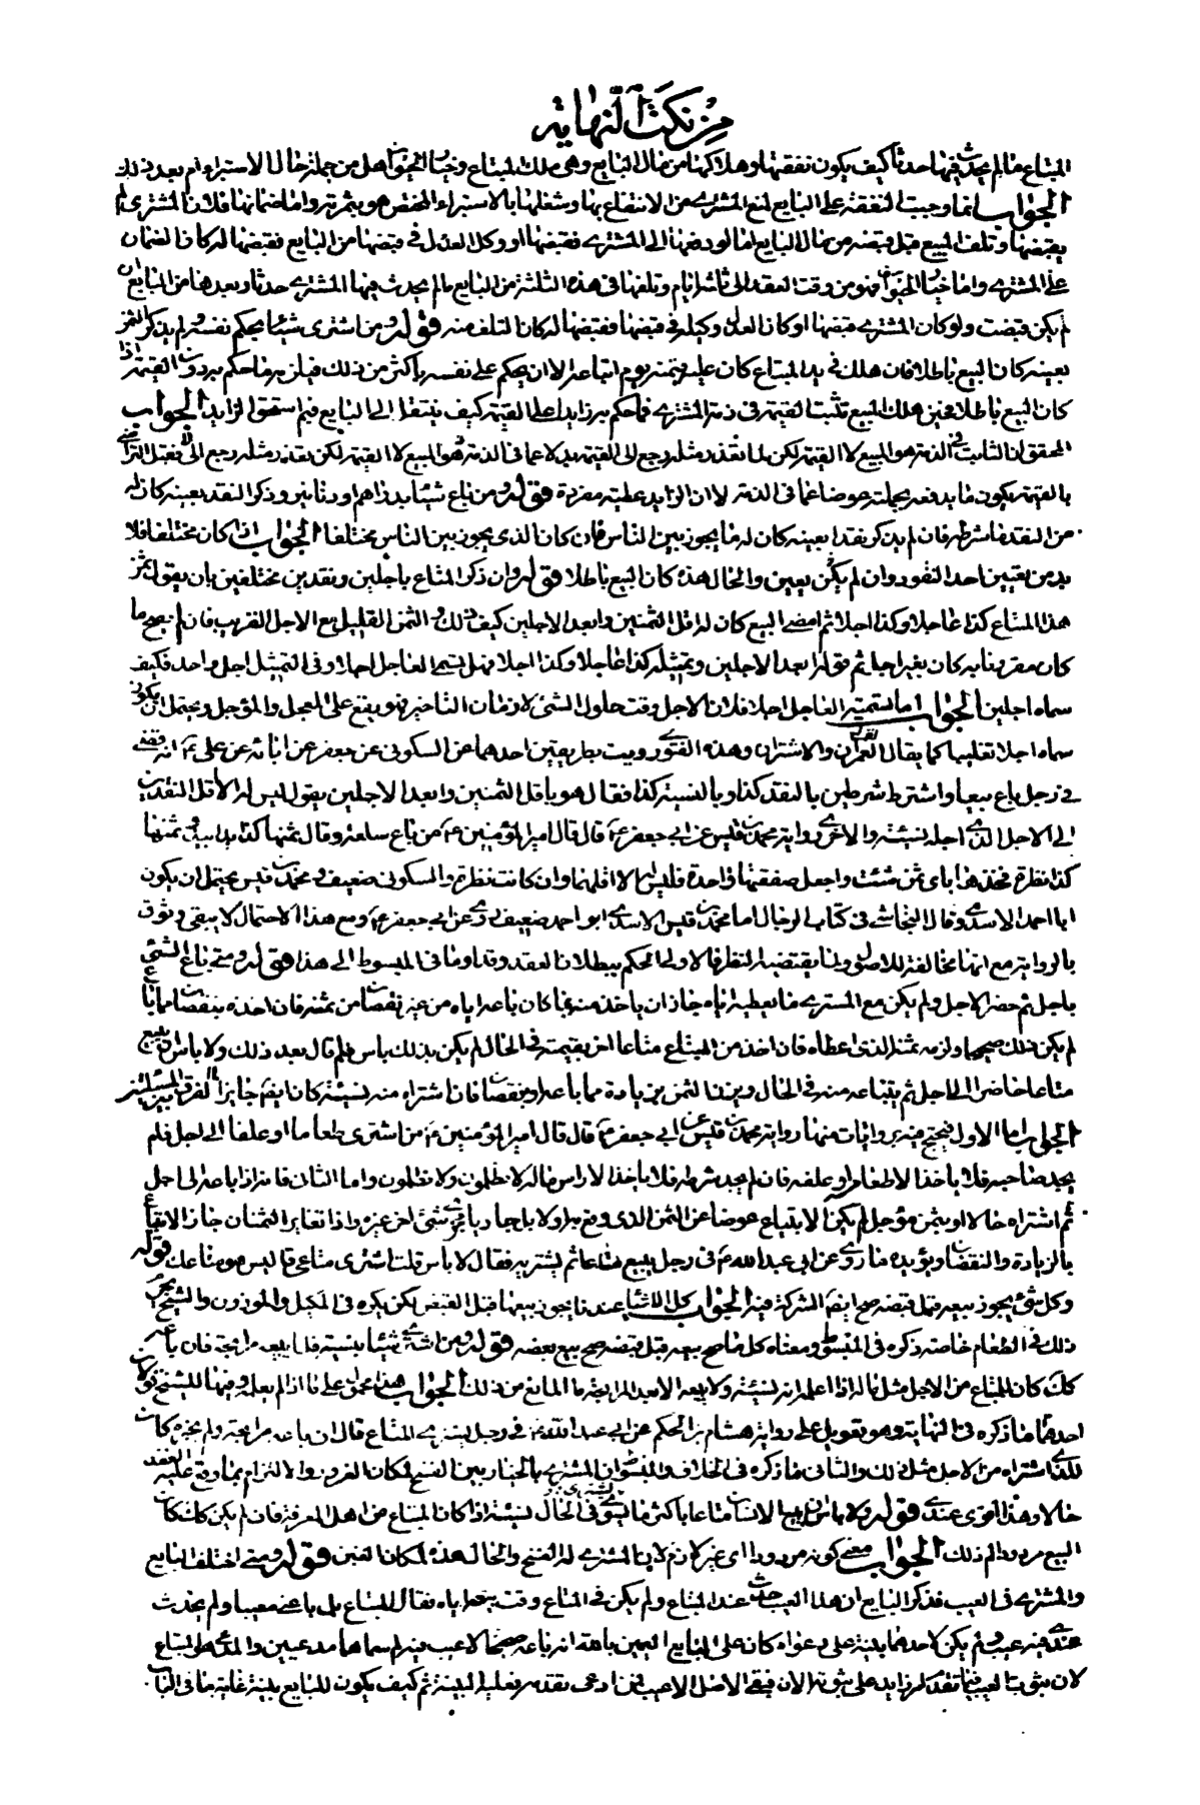 من نكت النهاية
المبتاع ما لم يحدث فيها حدثا كيف يكون نفقتها وهلاكها من مال البايع وهي ملك المبتاع وخيار الحيوان هل من جملة حال الاستبراء ام بعد ذلك
الجواب انما وجبت النفقة على البايع لمنع المشتري من الانتفاع بها وشغلها بالاستبراء المختص هو بثمرته واما ضمانها فلان المشتري لم
يقبضها وتلف المبيع قبل قبضه من مال البايع اما لو دفعها الى المشتري فقبضها او وكل العدل في قبضها من البايع فقبضها له كان الضمان
على المشتري واما خيار الحيوان فهو من وقت العقد الى ثلاثة ايام وتلفها في هذه الثلثة من البايع ما لم يحدث فيها المشتري حدثا وبعدها من البايع ان
لم يكن قبضت ولو كان المشتري قبضها او كان العدل وكيله في قبضها فقبضها له كان التلف منه قوله ومن اشترى شيئا بحكم نفسه ولم يذكر الثمن
بعينه كان البيع باطلا فان هلك في يد المبتاع كان عليه قيمته يوم ابتاعه الا ان يحكم على نفسه باكثر من ذلك فيلزمه ما حكم به دون القيمة اذا
كان البيع باطلا فحين هلك المبيع تثبت القيمة في ذمة المشتري فما حكم به زايدا على القيمة كيف ينتقل الى البايع فبم استحق الزايد الجواب
المحقق ان الثابت في الذمة هو المبيع لا القيمة لكن لما تعذر مثله رجع الى القيمة بدلا عما في الذمة
بالقيمة يكون ما يدفعه بجملته عوضا عما في الذمة لا ان الزايد عطية مفردة قوله ومن باع شيئا بدراهم او دنانير وذكر النقد بعينه كان له
من النقد ما شرطه فان لم يذكر نقدا بعينه كان له ما يجوز بين الناس فان كان الذي يجوز بين الناس مختلفا الجواب اذا كان مختلفا فلا
بد من تعيين احد النقود وان لم يكن يعين والحال هذه كان البيع باطلا قوله وان ذكر المتاع باجلين ونقدين مختلفين بان يقول ثمن
هذا المتاع كذا عاجلا وكذا اجلا ثم امضى البيع كان له اقل الثمنين وابعد الاجلين كيف ذلك والثمن القليل مع الاجل القريب فان لم يصح ما
كان مقرونا به كان بغير اجل ثم قوله ابعد الاجلين وتمثيله كذا عاجلا وكذا اجلا فهل يسمى العاجل اجلا وفي التمثيل اجل واحد فكيف
سماه اجلين الجواب اما تسمية العاجل اجلا فلان الاجل وقت حلول الشيء لا زمان التاخير فهو يقع على المعجل والمؤجل ويحتمل ان يكون
سماه اجلا تغليبا كما يقال القمران والاشتران وهذه الفتوى رويت بطريقين احدهما عن السكوني عن جعفر عن ابائه عن علي ع انه قضى
في رجل باع بيعا واشترط شرطين بالنقد كذا وبالنسية كذا فقال هو باقل الثمنين وابعد الاجلين يقول ليس له الا اقل النقدين
الى الاجل الذي اجله نسيئة والاخرى رواية محمد بن قيس عن ابي جعفر ع قال قال امير المؤمنين ع من باع سلعة وقال ثمنها كذا يدا بيد وثمنها
كذا نظرة فخذها باي ثمن شئت واجعل صفقتها واحدة فليس له الا اقلهما وان كانت نظرة والسكوني ضعيف ومحمد بن قيس يحتمل ان يكون
ابا احمد الاسدي وقال النجاشي في كتاب الرجال اما محمد بن قيس الاسدي ابو احمد ضعيف روى عن ابي جعفر ع ومع هذا الاحتمال لا يبقى وثوق
بالرواية مع انها مخالفة للاصول ولما يقتضيه النظر فالاولى الحكم ببطلان العقد وقد اوما في المبسوط الى هذا قوله ومتى باع الشيء
باجل ثم حضر الاجل ولم يكن مع المشتري ما يعطيه اياه جاز ان ياخذ منه ما كان باعه اياه من غير نقصان من ثمنه فان اخذه بنقصان مما باع
لم يكن ذلك صحيحا ولزمه ثمنه الذي اعطاه فان اخذ من المبتاع متاعا اخر بقيمته في الحال لم يكن بذلك باس ثم قال بعد ذلك ولا باس ان يبيع
متاعا حاضرا الى اجل ثم يبتاعه منه في الحال ويزن الثمن بزيادة مما باعه او بنقصان فان اشتراه منه نسيئة كان ايضا جايزا ما الفرق بين المسئلتين
الجواب اما الاول فيحتج فيه بروايات منها رواية محمد بن قيس عن ابي جعفر ع قال قال امير المؤمنين ع من اشترى طعاما او علفا الى اجل فلم
يجد صاحبه فلا ياخذ الا طعامه او علفه فان لم يجد شرطه فلا ياخذ الا راس ماله لا تظلمون ولا تظلمون واما الثاني فانه اذا باعه الى اجل
ثم اشتراه حالا او بثمن مؤجل لم يكن الابتياع عوضا عن الثمن الذي وقع به اولا
بالزيادة والنقصان ويؤيده ما روي عن ابي عبد الله ع في رجل يبيع متاعا ثم يشتريه فقال لا باس قلت اشترى متاعي قال ليس هو متاعك قوله
وكل شيء يجوز بيعه قبل قبضه صح ايضا الشركة فيه الجواب كل الاشياء عندنا يجوز بيعها قبل القبض لكن يكره في المكيل والموزون والشيخ يحرم
ذلك في الطعام خاصة ذكره في المبسوط ومعناه كل ما صح بيعه قبل قبضه صح بيع بعضه قوله ومن اشترى شيئا بنسية فلا يبيعه مرابحة فان باعه
كذلك كان للمبتاع من الاجل مثل ماله اذا اعلمه انه نسيئة ولا يبيعه الا بعد المرابحة ما المانع من ذلك الجواب هذا محمول على ما اذا لم يعلمه وفيها للشيخ قولان
احدهما ما ذكره في النهاية وهو تعويل على رواية هشام بن الحكم عن ابي عبد الله ع في رجل يشتري المتاع قال ان باعه مرابحة ولم يخبره كان
للذي اشتراه من الاجل مثل ذلك والثاني ما ذكره في الخلاف والمبسوط ان المشتري بالخيار بين الفسخ لمكان الغرور والالتزام بما وقع عليه العقد
حالا وهذا اقوى عندي قوله ولا باس ان يبيع الانسان متاعا باكثر مما يسوى في الحال نسيئة اذا كان المبتاع من اهل المعرفة فان لم يكن كذلك كان
البيع مردودا لم ذلك الجواب معنى كونه مردودا اي غير لازم لان للمشتري الفسخ والحال هذه لمكان الغبن قوله ومتى اختلف البايع
والمشتري في العيب فذكر البايع ان هذا العيب حدث عند المبتاع ولم يكن في المتاع وقت بيعه اياه فقال المبتاع بل باعني معيبا ولم يحدث
عندي فيه عيب ولم يكن لاحدهما بينة على دعواه كان على البايع اليمين بالله انه باعه صحيحا لا عيب فيه لم سماهما مدعيين والمدعي هو المبتاع
لان ثبوت العيب فيما تقدم زايد على ثبوته الان فيبقى الاصل الا عيب فمن ادعى تقدمه فعليه البينة ثم كيف يكون للبايع بينة غاية ما في الباب